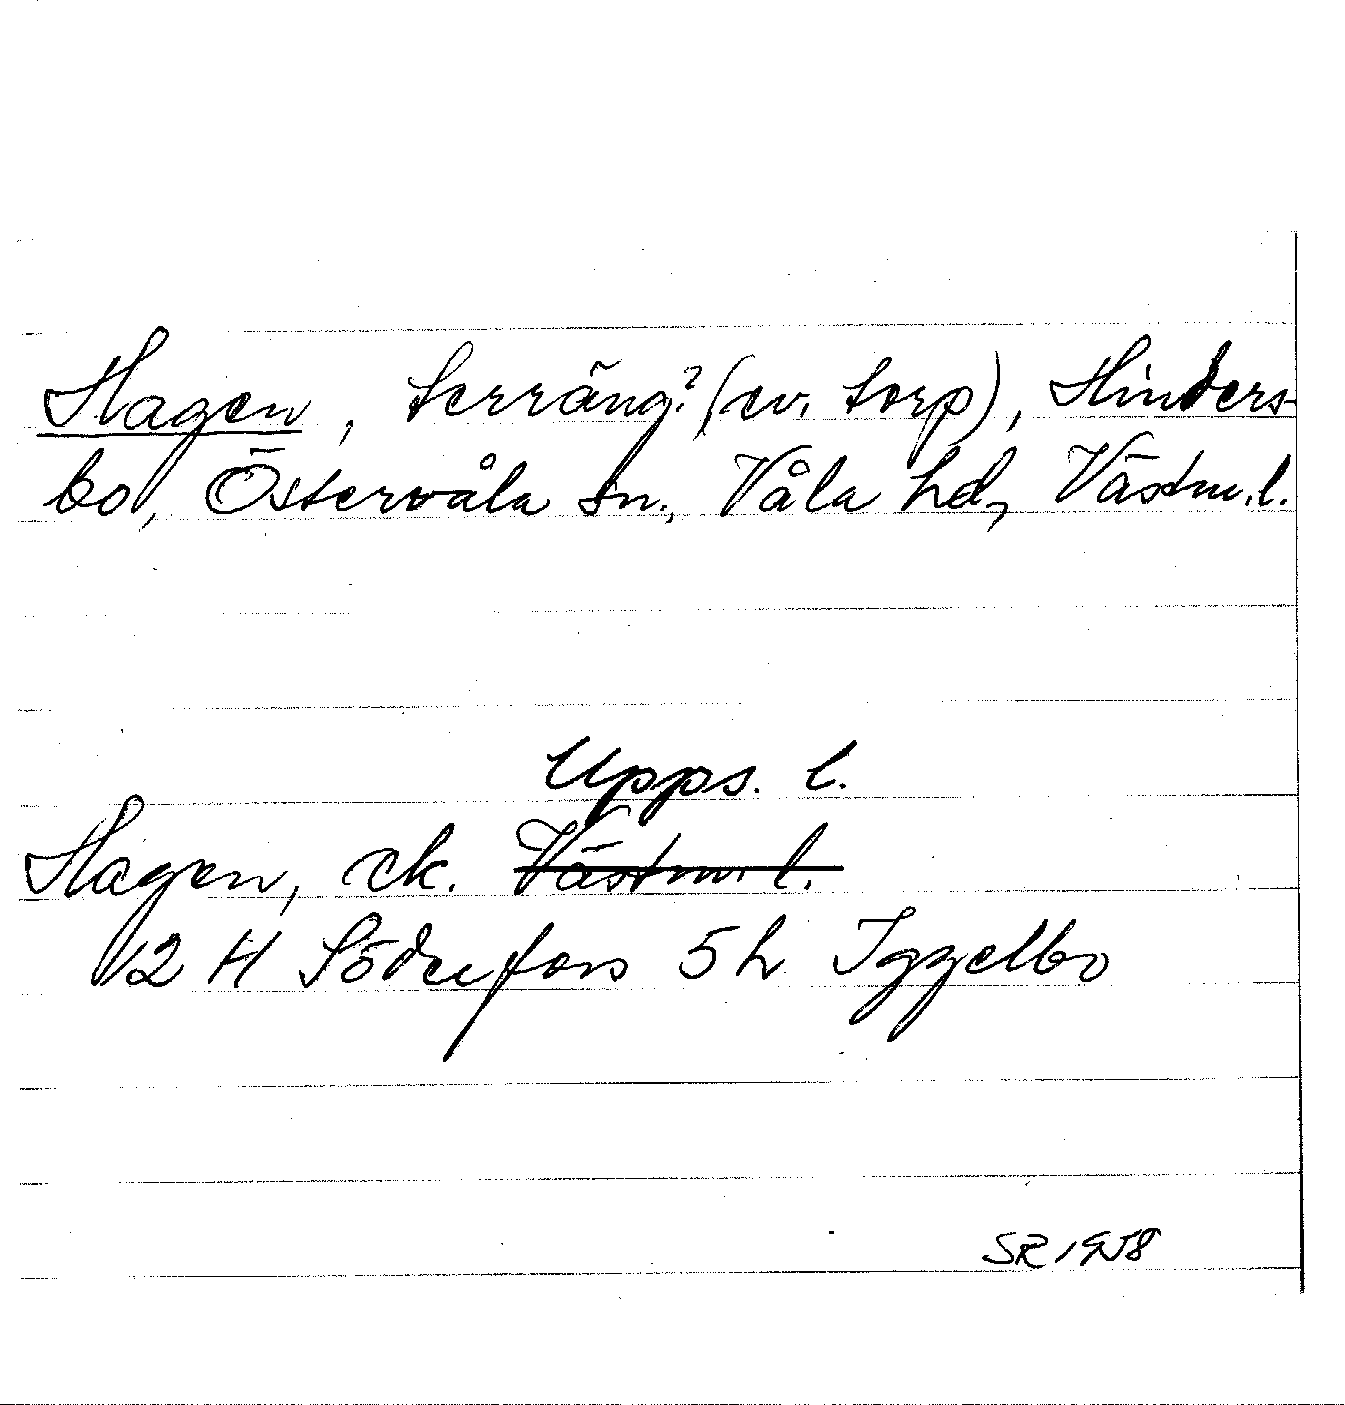 Hagen, terräng? (ev. torp), Hinders-
bo, Östervåla sn., Våla hd, Västm. l.
Upps. l.
Hagen, ek. Västm. l.
12 H Söderfors 5h Iggelbo
SR 1958